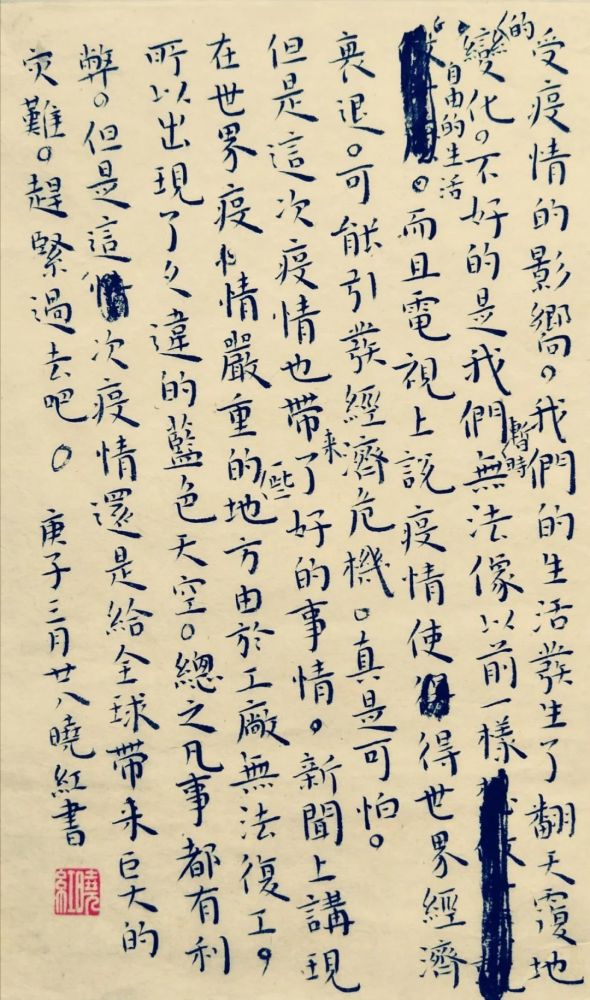 受疫情的影嚮。我們的生活發生了翻天覆地
的變化。不好的是我們暫時無法像以前一樣
自由的生活。而且電視上説疫情使得世界經濟
衰退。可能引發經濟危機。真是可怕。
但是這次疫情也帶来了些好的事情。新聞上講現
在世界疫情嚴重的地方由於工廠無法復工。
所以出現了久違的藍色天空。總之凡事都有利
弊。但是這次疫情還是給全球帶来巨大的
灾難。趕緊過去吧。 庚子三月廿八曉紅書
曉紅